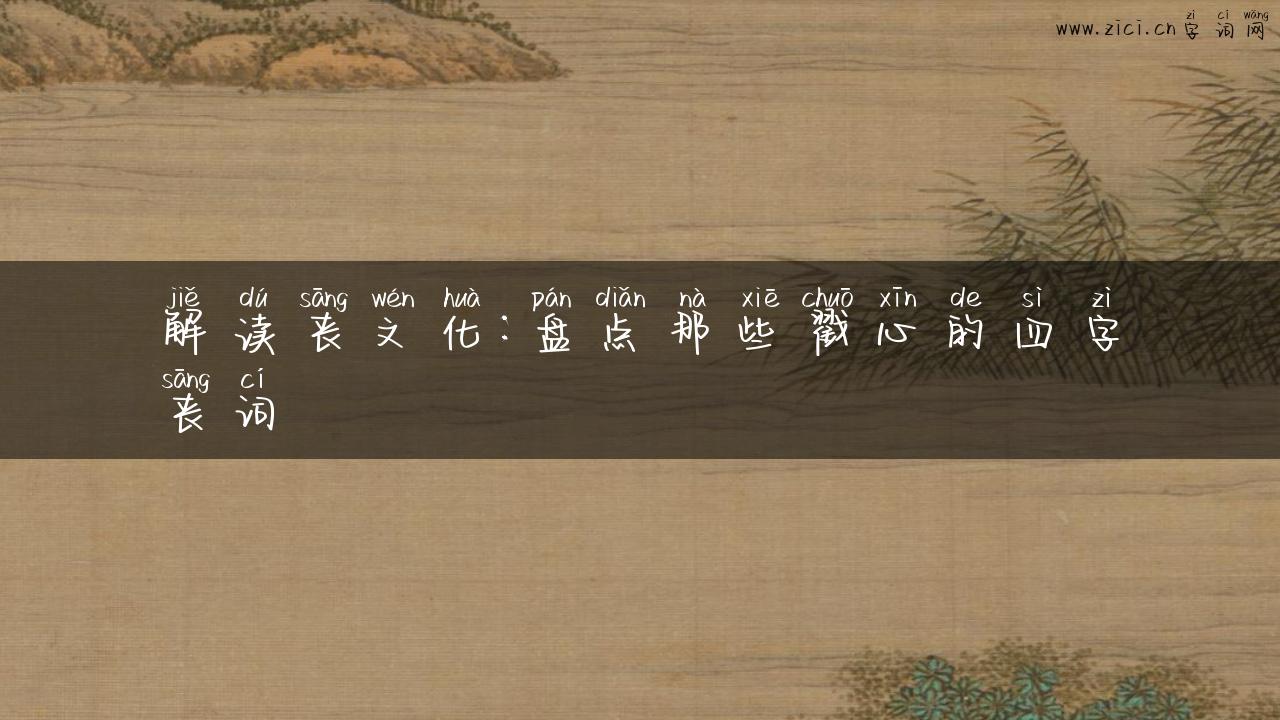 zì cí wǎng
www.zici.cn字词网
jiě dú sāng wén huà pán diǎn nà xiē chuō xīn de sì zì
解读丧文化:盘点那些戳心的四字
sāng cí
丧词